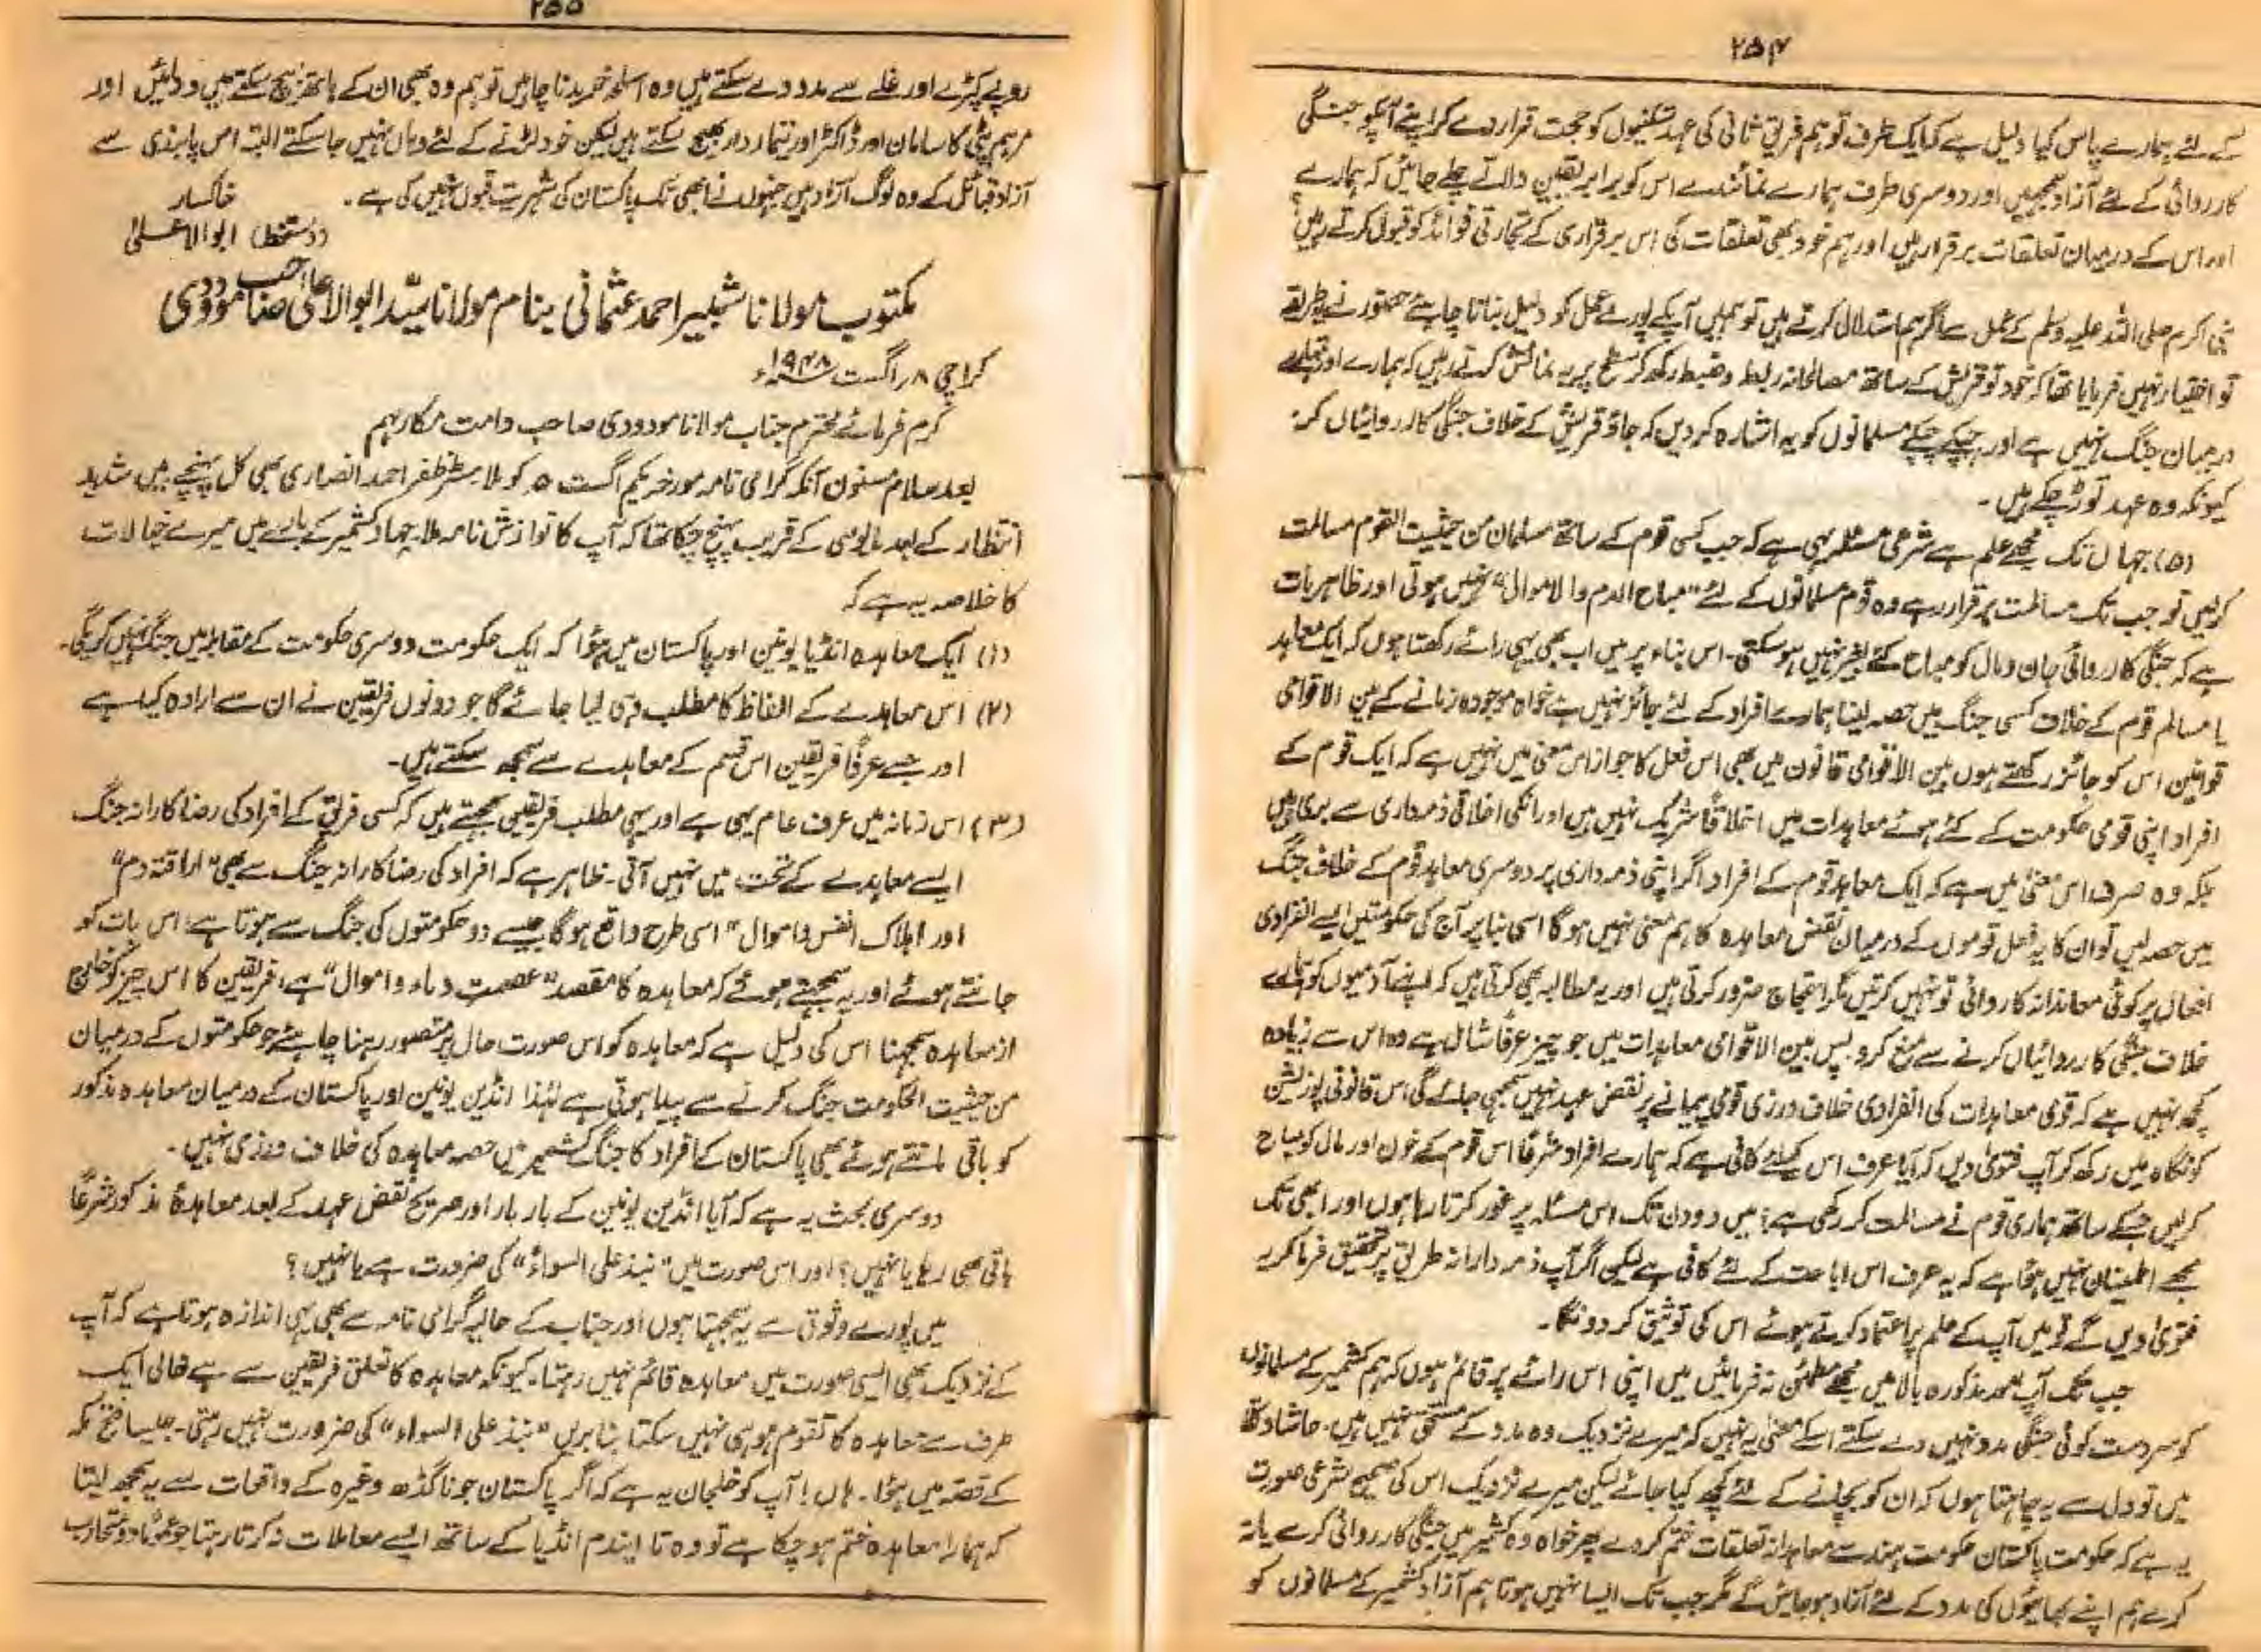 ۲۵۴
کے لئے ہمارے پاس کیا دلیل ہے کہ ایک طرف تو ہم فریق ثانی کی عہد شکنیوں کو حجت قرار دے کر اپنے آپکو جنگی
کارروائی کے لئے آزاد سمجھیں اور دوسری طرف ہمارے نمائندے اس کو برابر یقین دلاتے چلے جائیں کہ ہمارے
اور اس کے درمیان تعلقات برقرار ہیں اور ہم خود بھی تعلقات کی اس برقراری کے تجارتی فوائد کو قبول کرتے رہیں؟
نبی اکرم صلی اللہ علیہ وسلم کے عمل سے اگر ہم استدلال کرتے ہیں تو ہمیں آپ کے پورے عمل کو دلیل بنانا چاہئے حضور نے یہ طریقہ
تو اختیار نہیں فرمایا تھا کہ خود تو قریش کے ساتھ مصالحانہ ربط و ضبط رکھ کر سطح پر یہ نمائش کرتے رہیں کہ ہمارے اور تمہارے
درمیان جنگ نہیں ہے اور چپکے چپکے مسلمانوں کو یہ اشارہ کر دیں کہ جاؤ قریش کے خلاف جنگی کارروائیاں کرو
کیونکہ وہ عہد توڑ چکے ہیں ۔
(۵) جہاں تک مجھے علم ہے شرعی مسئلہ یہی ہے کہ جب کسی قوم کے ساتھ مسلمان من حیثیت القوم مسالمت
کرلیں تو جب تک مسالمت برقرار رہے وہ قوم مسلمانوں کے لئے "مباح الدم والاموال" نہیں ہوتی اور ظاہر بات
ہے کہ جنگی کارروائی جان و مال کو مباح کئے بغیر نہیں ہو سکتی۔ اس بناء پر میں اب بھی یہی رائے رکھتا ہوں کہ ایک معاہد
یا مسالم قوم کے خلاف کسی جنگ میں حصہ لینا ہمارے افراد کے لئے جائز نہیں ہے خواہ موجودہ زمانے کے بین الاقوامی
قوانین اس کو جائز رکھتے ہوں بین الاقوامی قانون میں بھی اس فعل کا جواز اس معنی میں نہیں ہے کہ ایک قوم کے
افراد اپنی قومی حکومت کے کئے ہوئے معاہدات میں اخلاقاً شریک نہیں ہیں اور انکی اخلاقی ذمہ داری سے بری ہیں
بلکہ وہ صرف اس معنی میں ہے کہ ایک معاہد قوم کے افراد اگر اپنی ذمہ داری پر دوسری معاہد قوم کے خلاف جنگ
میں حصہ لیں تو ان کا یہ فعل قوموں کے درمیان نقض معاہدہ کا ہم معنی نہیں ہوگا اسی بنا پر آج کی حکومتیں ایسے انفرادی
افعال پر کوئی معاندانہ کاروائی تو نہیں کرتیں مگر احتجاج ضرور کرتی ہیں اور یہ مطالبہ بھی کرتی ہیں کہ اپنے آدمیوں کو ہمارے
خلاف جنگی کارروائیاں کرنے سے منع کرو۔ پس بین الاقوامی معاہدات میں جو چیز عرفاً شامل ہے وہ اس سے زیادہ
کچھ نہیں ہے کہ قومی معاہدات کی انفرادی خلاف ورزی قومی پیمانے پر نقض عہد نہیں سمجھی جائے گی اس قانونی پوزیشن
کو نگاہ میں رکھ کر آپ فتویٰ دیں کہ آیا عرف اس کیلئے کافی ہے کہ ہمارے افراد شرعاً اس قوم کے خون اور مال کو مباح
کرلیں جسکے ساتھ ہماری قوم نے مسالمت کر رکھی ہے؛ میں دو دن تک اس مسئلہ پر غور کرتا رہا ہوں اور ابھی تک
مجھے اطمینان نہیں ہوا ہے کہ یہ عرف اس اباحت کے لئے کافی ہے لیکن اگر آپ ذمہ دارانہ طریق پر تحقیق فرما کر یہ
فتویٰ دیں گے تو میں آپ کے علم پر اعتماد کرتے ہوئے اس کی توثیق کر دونگا۔
جب تک آپ مذکورہ بالا میں مجھے مطمئن نہ فرمائیں میں اپنی اس رائے پر قائم ہوں کہ ہم کشمیر کے مسلمانوں
کو سردست کوئی جنگی مدد نہیں دے سکتے اسکے معنی یہ نہیں کہ میرے نزدیک وہ مدد کے مستحق نہیں ہیں۔ حاشا وکلا
میں تو دل سے یہ چاہتا ہوں کہ ان کو بچانے کے لئے کچھ کیا جائے لیکن میرے نزدیک اس کی صحیح شرعی صورت
یہ ہے کہ حکومت پاکستان حکومت ہند سے معاہدانہ تعلقات ختم کر دے پھر خواہ وہ کشمیر میں جنگی کارروائی کرے یا نہ
کرے ہم اپنے بھائیوں کی مدد کے لئے آزاد ہو جائیں گے مگر جب تک ایسا نہیں ہوتا ہم آزاد کشمیر کے مسلمانوں کو
۲۵۵
روپے کپڑے اور غلے سے مدد دے سکتے ہیں وہ اسلحہ خریدنا چاہیں تو ہم وہ بھی ان کے ہاتھ بیچ سکتے ہیں دوائیں اور
مرہم پٹی کا سامان اور ڈاکٹر اور تیماردار بھیج سکتے ہیں لیکن خود لڑنے کے لئے وہاں نہیں جا سکتے البتہ اس پابندی سے
آزاد قبائل کے وہ لوگ آزاد ہیں جنہوں نے ابھی تک پاکستان کی شہریت قبول نہیں کی ہے ۔ خاکسار
(دستخط) ابوالاعلیٰ
مکتوب مولانا شبیر احمد عثمانی بنام مولانا سیّد ابوالاعلیٰ صاحب مودودی
کراچی ۸ر اگست ۱۹۴۸ء
کرم فرمائے محترم جناب مولانا مودودی صاحب دامت مکارہم
بعد سلام مسنون آنکہ گرامی نامہ مورخہ یکم اگست ۵ کو ملا۔ مسٹر ظفر احمد انصاری بھی کل پہنچے ہیں شدید
انتظار کے بعد مایوسی کے قریب پہنچ چکا تھا کہ آپ کا نوازش نامہ ملا۔ جہاد کشمیر کے بارے میں میرے خیالات
کا خلاصہ یہ ہے کہ
(۱) ایک معاہدہ انڈیا یونین اور پاکستان میں ہؤا کہ ایک حکومت دوسری حکومت کے مقابلہ میں جنگ نہیں کریگی۔
(۲) اس معاہدے کے الفاظ کا مطلب وہی لیا جائے گا جو دونوں فریقین نے ان سے ارادہ کیا ہے
اور جسے عرفاً فریقین اس قسم کے معاہدے سے سمجھ سکتے ہیں۔
(۳) اس زمانہ میں عرف عام یہی ہے اور یہی مطلب فریقین سمجھتے ہیں کہ کسی فریق کے افراد کی رضاکارانہ جنگ
ایسے معاہدے کے تحت میں نہیں آتی۔ ظاہر ہے کہ افراد کی رضاکارانہ جنگ سے بھی "اراقتہ دم"
اور اہلاک انفس واموال" اسی طرح واقع ہوگا جیسے دو حکومتوں کی جنگ سے ہوتا ہے؛ اس بات کو
جانتے ہوئے اور یہ سمجھتے ہوئے کہ معاہدہ کا مقصد "عصمت دماء واموال" ہے، فریقین کا اس چیز کو خارج
از معاہدہ سمجھنا اس کی دلیل ہے کہ معاہدہ کو اس صورت حال پر متصور رہنا چاہئے جو حکومتوں کے درمیان
من حیثیت الحکومت جنگ کرنے سے پیدا ہوتی ہے لہٰذا انڈین یونین اور پاکستان کے درمیان معاہدہ مذکور
کو باقی مانتے ہوئے بھی پاکستان کے افراد کا جنگ کشمیر میں حصہ معاہدہ کی خلاف ورزی نہیں ۔
دوسری بحث یہ ہے کہ آیا انڈین یونین کے بار بار اور صریح نقض عہد کے بعد معاہدۂ مذکور شرعاً
باقی بھی رہا یا نہیں؟ اور اس صورت میں "نبذ علی السواء" کی ضرورت ہے یا نہیں ؟
میں پورے وثوق سے یہ سمجھتا ہوں اور جناب کے حالیہ گرامی نامہ سے بھی یہی اندازہ ہوتا ہے کہ آپ
کے نزدیک بھی ایسی صورت میں معاہدہ قائم نہیں رہتا۔ کیونکہ معاہدہ کا تعلق فریقین سے ہے خالی ایک
طرف سے معاہدہ کا تقوم ہو ہی نہیں سکتا بنا بریں "نبذ علی السواء" کی ضرورت نہیں رہتی۔ جیسا فتح مکہ
کے قصہ میں ہؤا۔ ہاں! آپ کو خلجان یہ ہے کہ اگر پاکستان جوناگڈھ وغیرہ کے واقعات سے یہ سمجھ لیتا
کہ ہمارا معاہدہ ختم ہو چکا ہے تو وہ تا ایندم انڈیا کے ساتھ ایسے معاملات نہ کرتا رہتا جو عموماً دو متحارب